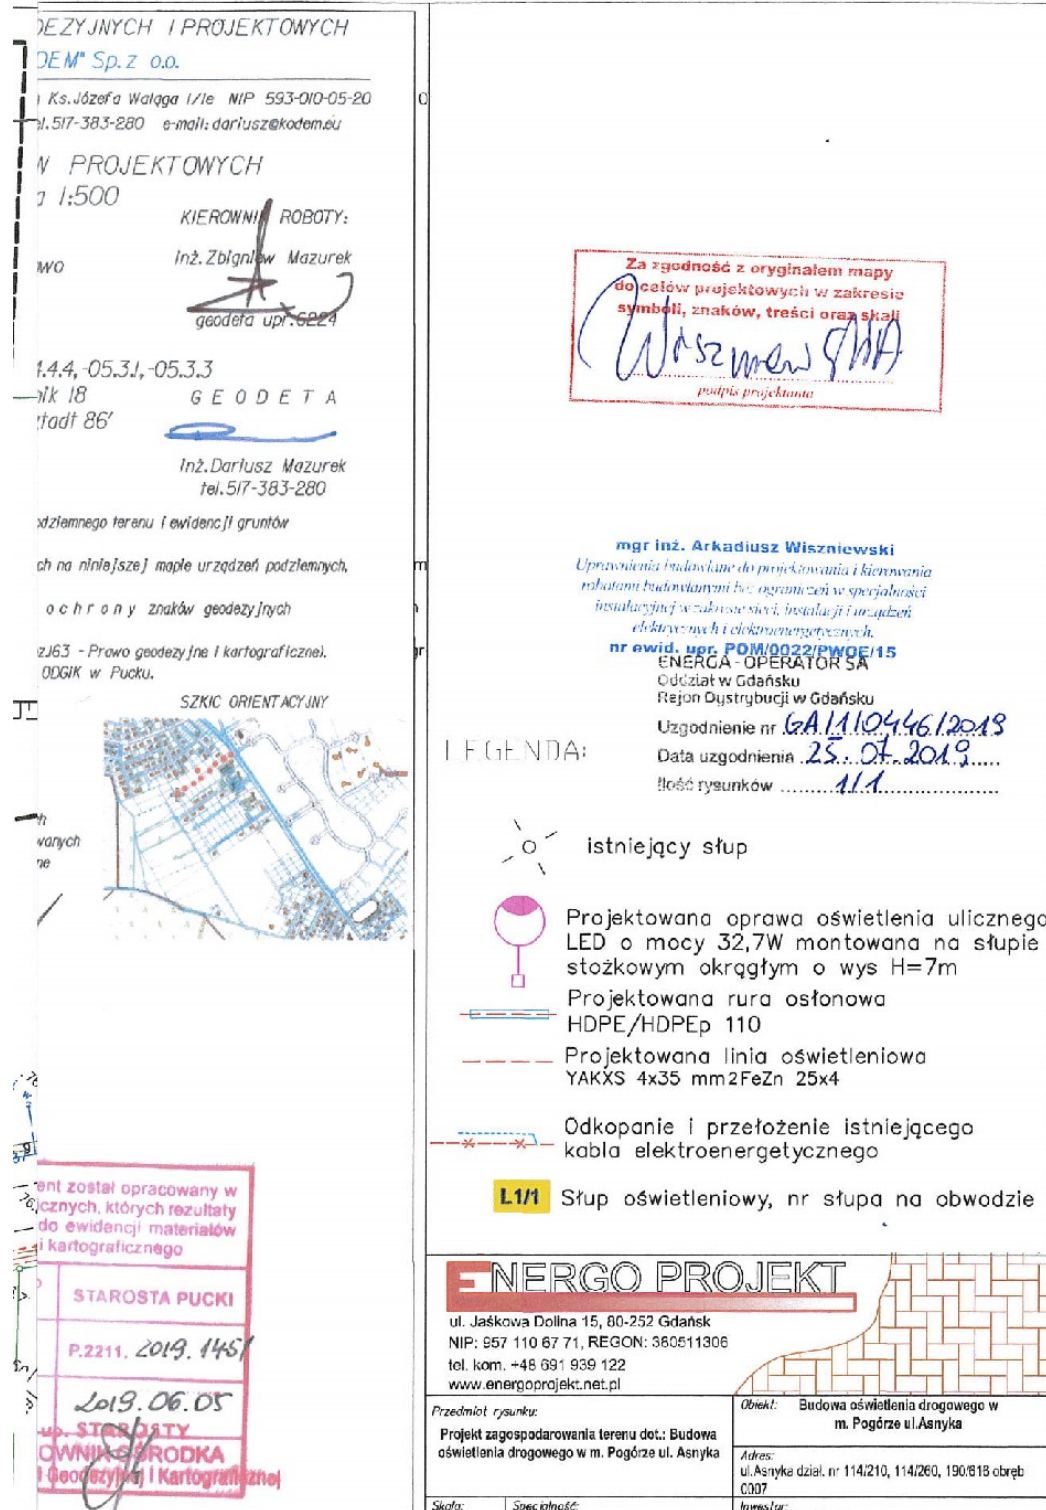 DEZYJNYCH I PROJEKTOWYCH
DEM" Sp. z o.o.
Ks.Józefa Wałąga 1/1e NIP 593-010-05-20
el.517-383-280 e-mail: dariusz@kodem.eu
W PROJEKTOWYCH
a 1:500
KIEROWNIK ROBOTY:
inż. Zbigniew Mazurek
geodeta upr.6224
wo
1.4.4, -05.3.1, -05.3.3
nik 18
GEODETA
tadt 86'
inż. Dariusz Mazurek
tel. 517-383-280
odziemnego terenu i ewidencji gruntów
ch na niniejszej mapie urządzeń podziemnych,
ochrony znaków geodezyjnych
z.163 - Prawo geodezyjne i kartograficzne).
ODGiK w Pucku.
SZKIC ORIENTACYJNY
h
wanych
ne
ent został opracowany w
icznych, których rezultaty
do ewidencji materiałów
i kartograficznego
STAROSTA PUCKI
P.2211. 2019.1451
2019.06.05
up. STAROSTY
OWNIK OŚRODKA
i Geodezyjnej i Kartograficznej
Za zgodność z oryginałem mapy
do celów projektowych w zakresie
symboli, znaków, treści oraz skali
podpis projektanta
mgr inż. Arkadiusz Wiszniewski
Uprawnienia budowlane do projektowania i kierowania
robotami budowlanymi bez ograniczeń w specjalności
instalacyjnej w zakresie sieci, instalacji i urządzeń
elektrycznych i elektroenergetycznych.
nr ewid. upr. POM/0022/PWOE/15
ENERGA - OPERATOR SA
Oddział w Gdańsku
Rejon Dystrybucji w Gdańsku
Uzgodnienie nr GA/1/0446/2019
Data uzgodnienia 25.07.2019
Ilość rysunków 1/1
LEGENDA:
istniejący słup
Projektowana oprawa oświetlenia ulicznego
LED o mocy 32,7W montowana na słupie
stożkowym okrągłym o wys H=7m
Projektowana rura osłonowa
HDPE/HDPEp 110
Projektowana linia oświetleniowa
YAKXS 4x35 mm2FeZn 25x4
Odkopanie i przełożenie istniejącego
kabla elektroenergetycznego
L1/1 Słup oświetleniowy, nr słupa na obwodzie
ENERGO PROJEKT
ul. Jaśkowa Dolina 15, 80-252 Gdańsk
NIP: 957 110 67 71, REGON: 380511306
tel. kom. +48 691 939 122
www.energoprojekt.net.pl
Przedmiot rysunku:
Projekt zagospodarowania terenu dot.: Budowa
oświetlenia drogowego w m. Pogórze ul. Asnyka
Obiekt: Budowa oświetlenia drogowego w
m. Pogórze ul.Asnyka
Adres:
ul.Asnyka dział. nr 114/210, 114/260, 190/618 obręb
0007
Skala:
Specjalność:
Inwestor: